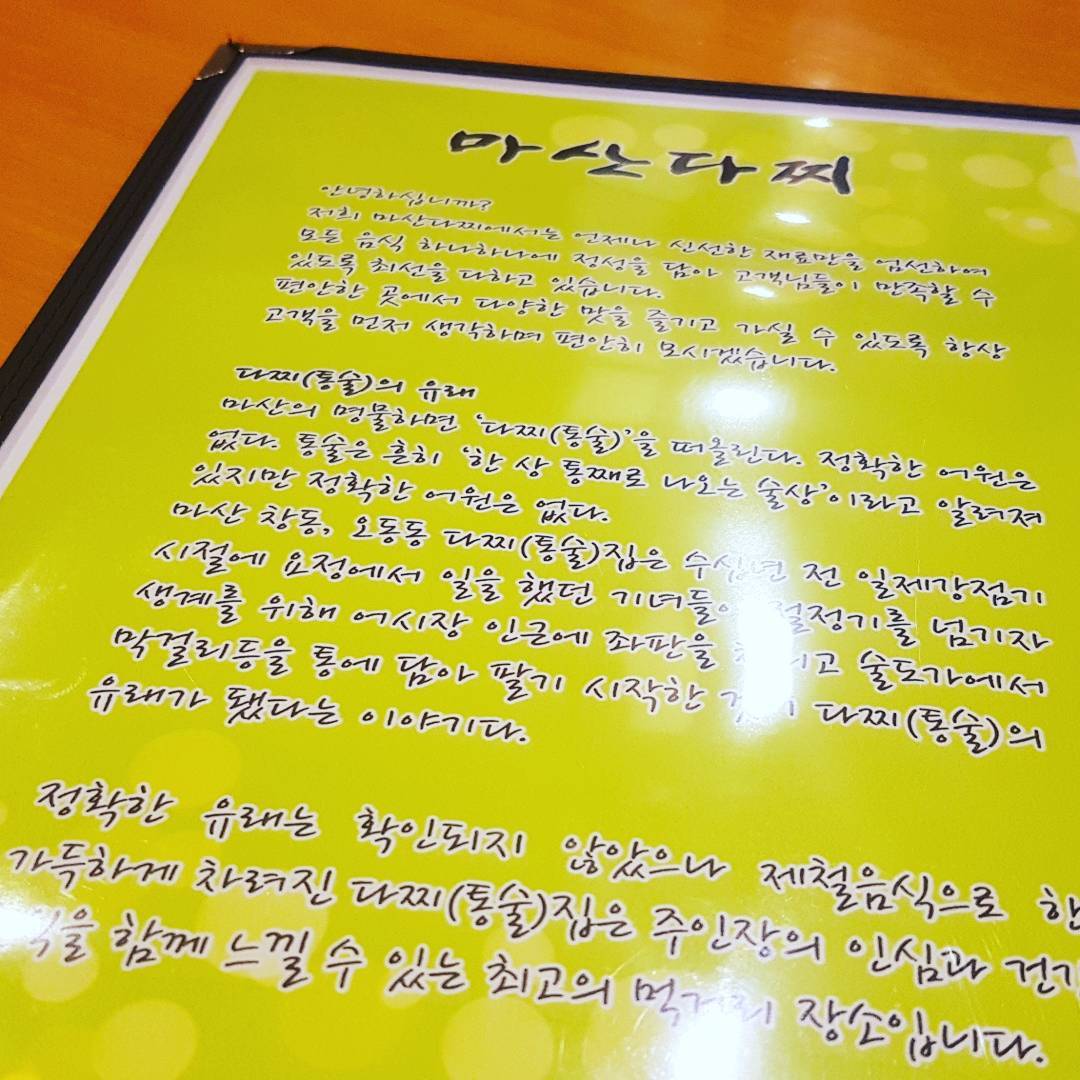 마산다찌
안녕하십니까?
저희 마산다찌에서는 언제나 신선한 재료만을 엄선하여
모든 음식 하나하나에 정성을 담아 고객님들이 만족할 수
있도록 최선을 다하고 있습니다.
편안한 곳에서 다양한 맛을 즐기고 가실 수 있도록 항상
고객을 먼저 생각하며 편안히 모시겠습니다.
다찌(통술)의 유래
마산의 명물하면 '다찌(통술)'을 떠올린다. 정확한 어원은
없다. 통술은 흔히 '한 상 통째로 나오는 술상'이라고 알려져
있지만 정확한 어원은 없다.
마산 창동, 오동동 다찌(통술)집은 수십년 전 일제강점기
시절에 요정에서 일을 했던 기녀들이 절정기를 넘기자
생계를 위해 어시장 인근에 좌판을 술도가에서
막걸리등을 통에 담아 팔기 시작한 것이 다찌(통술)의
유래가 됐다는 이야기다.
정확한 유래는 확인되지 않았으나 제철음식으로 한
가득하게 차려진 다찌(통술)집은 주인장의 인심과
함께 느낄 수 있는 최고의 먹거리 장소입니다.